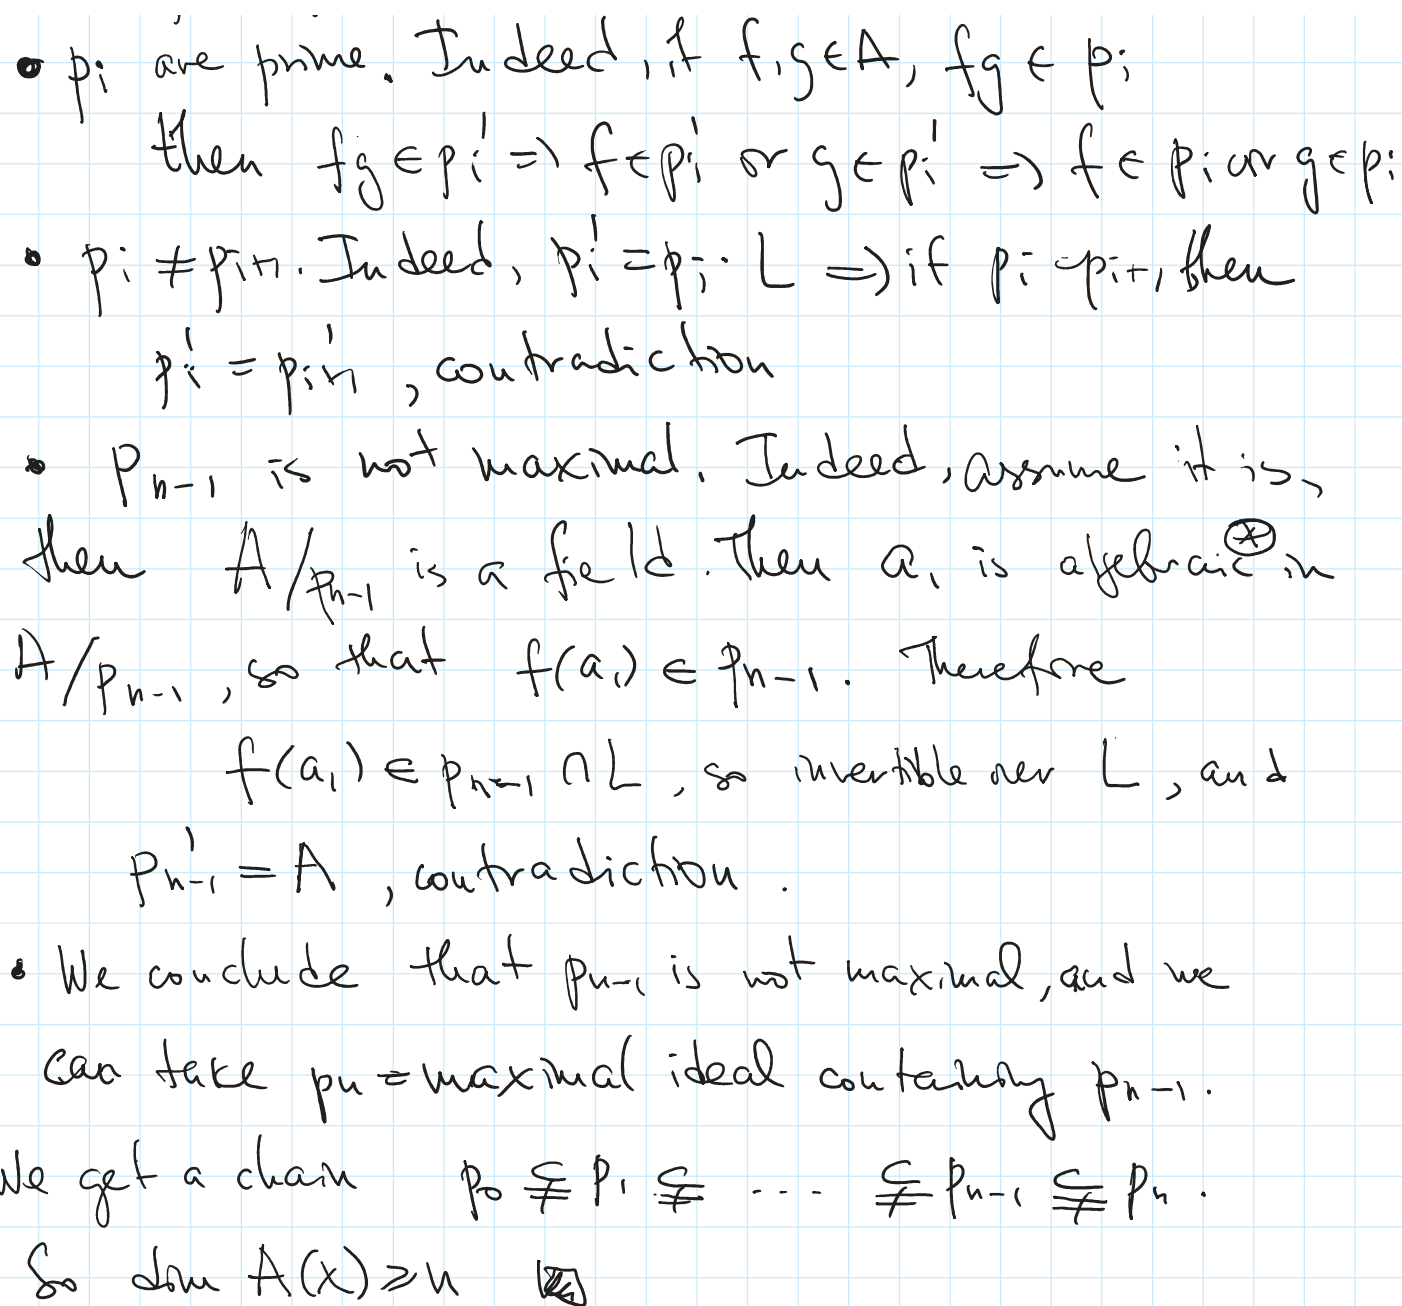 • pi are prime. Indeed, if f,g∈A, fg ∈ pi
then fg ∈ pi' => f∈pi' or g∈pi' => f ∈ pi or g∈pi
• pi ≠ pi+1. Indeed, pi' = pi · L => if pi = pi+1, then
pi' = pi+1', contradiction
• Pn-1 is not maximal. Indeed, assume it is,
then A/pn-1 is a field. Then a1 is algebraic ⊛ in
A/pn-1, so that f(a1) ∈ pn-1. Therefore
f(a1) ∈ pn-1 ∩ L, so invertible over L, and
pn-1' = A, contradiction.
• We conclude that pn-1 is not maximal, and we
can take pn = maximal ideal containing pn-1.
We get a chain p0 ⊊ p1 ⊊ .... ⊊ pn-1 ⊊ pn.
So dim A(X) ≥ n